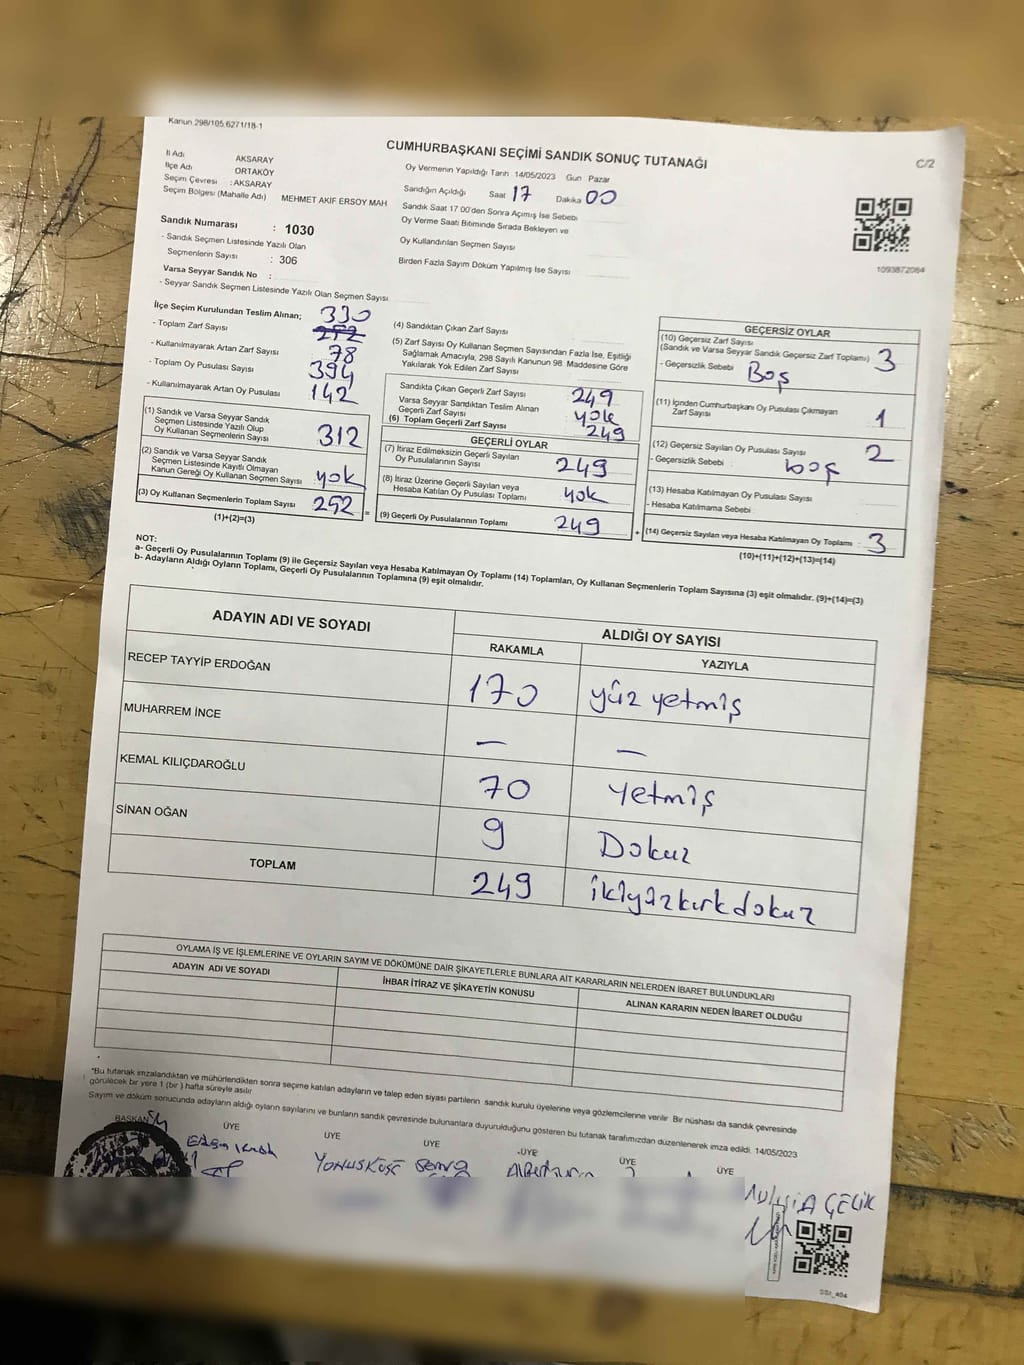 Kanun.298/105.6271/18-1
CUMHURBAŞKANI SEÇİMİ SANDIK SONUÇ TUTANAĞI
C/2
İl Adı AKSARAY
İlçe Adı ORTAKÖY
Seçim Çevresi : AKSARAY
Seçim Bölgesi (Mahalle Adı) MEHMET AKİF ERSOY MAH
Sandık Numarası : 1030
- Sandık Seçmen Listesinde Yazılı Olan
Seçmenlerin Sayısı : 306
Varsa Seyyar Sandık No :
- Seyyar Sandık Seçmen Listesinde Yazılı Olan Seçmen Sayısı
Oy Vermenin Yapıldığı Tarih 14/05/2023 Gün Pazar
Sandığın Açıldığı Saat 17 Dakika 00
Sandık Saat 17.00'den Sonra Açımış İse Sebebi
Oy Verme Saati Bitiminde Sırada Bekleyen ve
Oy Kullandırılan Seçmen Sayısı
Birden Fazla Sayım Döküm Yapılmış İse Sayısı
1093872084
İlçe Seçim Kurulundan Teslim Alınan; 330
- Toplam Zarf Sayısı 272
- Kullanılmayarak Artan Zarf Sayısı 78
- Toplam Oy Pusulası Sayısı 394
- Kullanılmayarak Artan Oy Pusulası 142
(1) Sandık ve Varsa Seyyar Sandık
Seçmen Listesinde Yazılı Olup
Oy Kullanan Seçmenlerin Sayısı 312
(2) Sandık ve Varsa Seyyar Sandık
Seçmen Listesinde Kayıtlı Olmayan
Kanun Gereği Oy Kullanan Seçmen Sayısı yok
(3) Oy Kullanan Seçmenlerin Toplam Sayısı 252 =
(1)+(2)=(3)
(4) Sandıktan Çıkan Zarf Sayısı
(5) Zarf Sayısı Oy Kullanan Seçmen Sayısından Fazla İse, Eşitliği
Sağlamak Amacıyla, 298 Sayılı Kanunun 98. Maddesine Göre
Yakılarak Yok Edilen Zarf Sayısı
Sandıkta Çıkan Geçerli Zarf Sayısı 249
Varsa Seyyar Sandıktan Teslim Alınan
Geçerli Zarf Sayısı yok
(6) Toplam Geçerli Zarf Sayısı 249
GEÇERLİ OYLAR
(7) İtiraz Edilmeksizin Geçerli Sayılan
Oy Pusulalarının Sayısı 249
(8) İtiraz Üzerine Geçerli Sayılan veya
Hesaba Katılan Oy Pusulası Toplamı yok
(9) Geçerli Oy Pusulalarının Toplamı 249 +
GEÇERSİZ OYLAR
(10) Geçersiz Zarf Sayısı
(Sandık ve Varsa Seyyar Sandık Geçersiz Zarf Toplamı) 3
- Geçersizlik Sebebi Boş
(11) İçinden Cumhurbaşkanı Oy Pusulası Çıkmayan
Zarf Sayısı 1
(12) Geçersiz Sayılan Oy Pusulası Sayısı 2
- Geçersizlik Sebebi : boş
(13) Hesaba Katılmayan Oy Pusulası Sayısı
- Hesaba Katılmama Sebebi
(14) Geçersiz Sayılan veya Hesaba Katılmayan Oy Toplamı : 3
(10)+(11)+(12)+(13)=(14)
NOT:
a- Geçerli Oy Pusulalarının Toplamı (9) ile Geçersiz Sayılan veya Hesaba Katılmayan Oy Toplamı (14) Toplamları, Oy Kullanan Seçmenlerin Toplam Sayısına (3) eşit olmalıdır. (9)+(14)=(3)
b- Adayların Aldığı Oyların Toplamı, Geçerli Oy Pusulalarının Toplamına (9) eşit olmalıdır.
ADAYIN ADI VE SOYADI ALDIĞI OY SAYISI
RAKAMLA YAZIYLA
RECEP TAYYİP ERDOĞAN 170 yüz yetmiş
MUHARREM İNCE — —
KEMAL KILIÇDAROĞLU 70 Yetmiş
SİNAN OĞAN 9 Dokuz
TOPLAM 249 ikiyüzkırkdokuz
OYLAMA İŞ VE İŞLEMLERİNE VE OYLARIN SAYIM VE DÖKÜMÜNE DAİR ŞİKAYETLERLE BUNLARA AİT KARARLARIN NELERDEN İBARET BULUNDUKLARI
ADAYIN ADI VE SOYADI İHBAR İTİRAZ VE ŞİKAYETİN KONUSU ALINAN KARARIN NEDEN İBARET OLDUĞU
*Bu tutanak imzalandıktan ve mühürlendikten sonra seçime katılan adayların ve talep eden siyasi partilerin sandık kurulu üyelerine veya gözlemcilerine verilir. Bir nüshası da sandık çevresinde
görülecek bir yere 1 (bir ) hafta süreyle asılır
Sayım ve döküm sonucunda adayların aldığı oyların sayılarını ve bunların sandık çevresinde bulunanlara duyurulduğunu gösteren bu tutanak tarafımızdan düzenlenerek imza edildi. 14/05/2023
BAŞKAN ÜYE ÜYE ÜYE ÜYE ÜYE ÜYE
ÇELİK